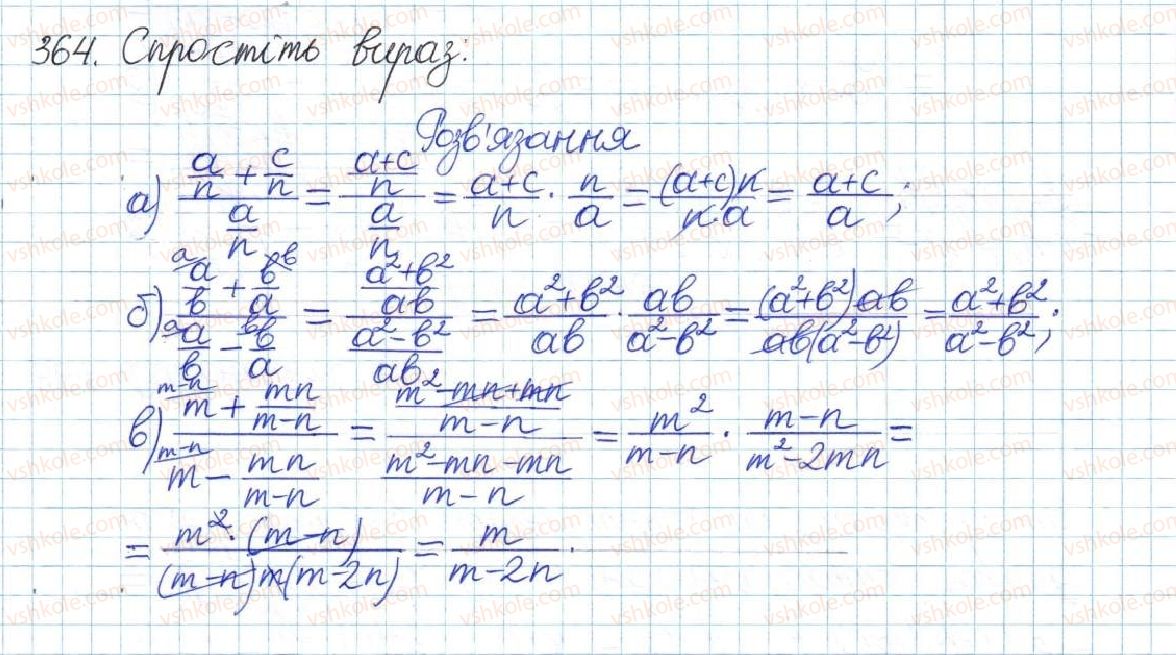 364. Спростіть вираз:
Розв'язання
а) (a/n + c/n)/(a/n) = ((a+c)/n)/(a/n) = (a+c)/n · n/a = (a+c)n/(n·a) = (a+c)/a;
б) (a/в + в/a)/(a/в − в/a) = ((a²+в²)/aв)/((a²−в²)/aв) = (a²+в²)/aв · aв/(a²−в²) = (a²+в²)aв/(aв(a²−в²)) = (a²+в²)/(a²−в²);
в) (m + mn/(m−n))/(m − mn/(m−n)) = ((m²−mn+mn)/(m−n))/((m²−mn−mn)/(m−n)) = m²/(m−n) · (m−n)/(m²−2mn) =
= m²·(m−n)/((m−n)m(m−2n)) = m/(m−2n).